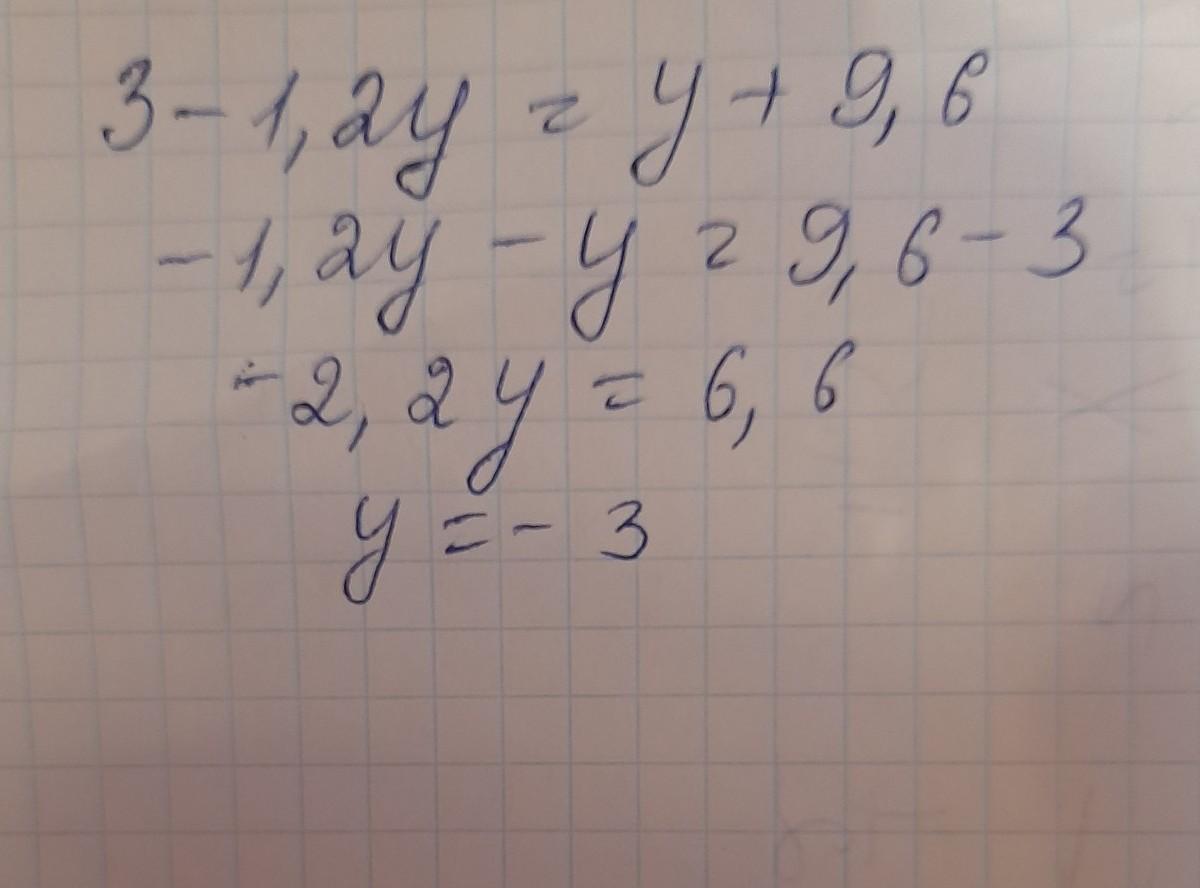 3 - 1,2y = y + 9,6
-1,2y - y = 9,6 - 3
-2,2y = 6,6
y = -3